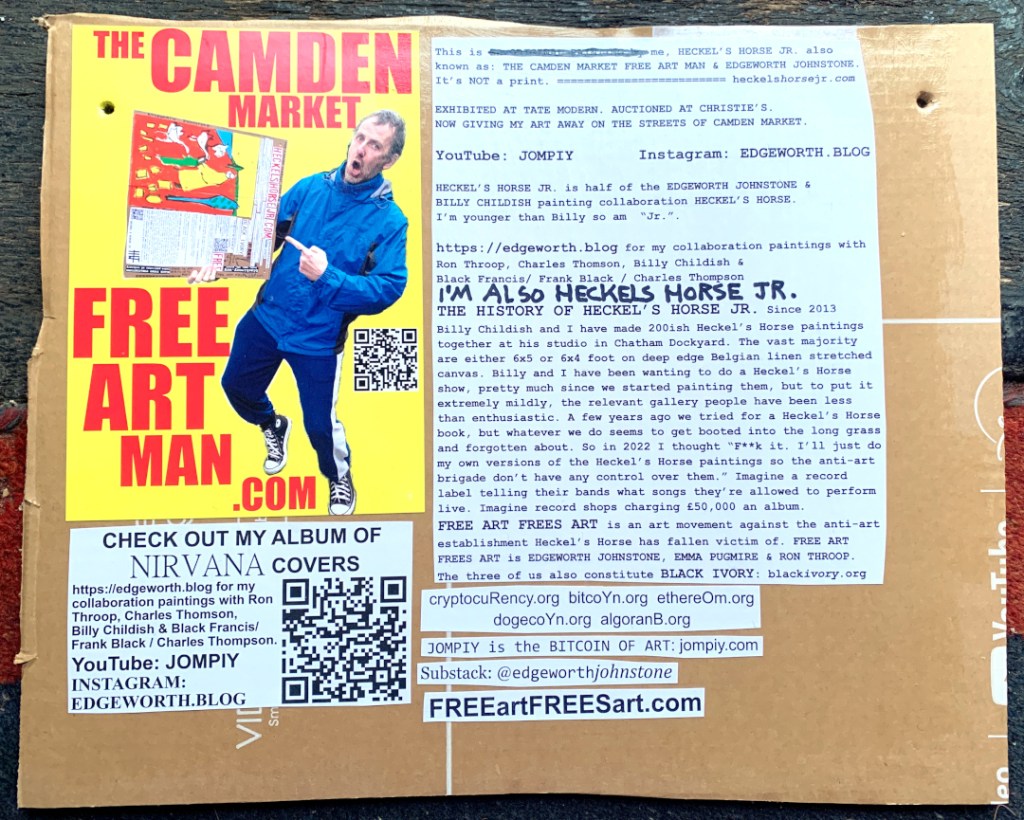 THE CAMDEN
MARKET
HECKELSHORSEJR.COM
FREE
ART
MAN
.COM
CHECK OUT MY ALBUM OF
NIRVANA COVERS
https://edgeworth.blog for my
collaboration paintings with Ron
Throop, Charles Thomson,
Billy Childish & Black Francis/
Frank Black / Charles Thompson.
YouTube: JOMPIY
INSTAGRAM:
EDGEWORTH.BLOG
This is me, HECKEL'S HORSE JR. also
known as: THE CAMDEN MARKET FREE ART MAN & EDGEWORTH JOHNSTONE.
It's NOT a print. ======================== heckelshorsejr.com
EXHIBITED AT TATE MODERN. AUCTIONED AT CHRISTIE'S.
NOW GIVING MY ART AWAY ON THE STREETS OF CAMDEN MARKET.
YouTube: JOMPIY Instagram: EDGEWORTH.BLOG
HECKEL'S HORSE JR. is half of the EDGEWORTH JOHNSTONE &
BILLY CHILDISH painting collaboration HECKEL'S HORSE.
I'm younger than Billy so am "Jr.".
https://edgeworth.blog for my collaboration paintings with
Ron Throop, Charles Thomson, Billy Childish &
Black Francis/ Frank Black / Charles Thompson
I'M ALSO HECKELS HORSE JR.
THE HISTORY OF HECKEL'S HORSE JR. Since 2013
Billy Childish and I have made 200ish Heckel's Horse paintings
together at his studio in Chatham Dockyard. The vast majority
are either 6x5 or 6x4 foot on deep edge Belgian linen stretched
canvas. Billy and I have been wanting to do a Heckel's Horse
show, pretty much since we started painting them, but to put it
extremely mildly, the relevant gallery people have been less
than enthusiastic. A few years ago we tried for a Heckel's Horse
book, but whatever we do seems to get booted into the long grass
and forgotten about. So in 2022 I thought "F**k it. I'll just do
my own versions of the Heckel's Horse paintings so the anti-art
brigade don't have any control over them." Imagine a record
label telling their bands what songs they're allowed to perform
live. Imagine record shops charging £50,000 an album.
FREE ART FREES ART is an art movement against the anti-art
establishment Heckel's Horse has fallen victim of. FREE ART
FREES ART is EDGEWORTH JOHNSTONE, EMMA PUGMIRE & RON THROOP.
The three of us also constitute BLACK IVORY: blackivory.org
cryptocuRency.org bitcoYn.org ethereOm.org
dogecoYn.org algoranB.org
JOMPIY is the BITCOIN OF ART: jompiy.com
Substack: @edgeworthjohnstone
FREEartFREESart.com
YouTube